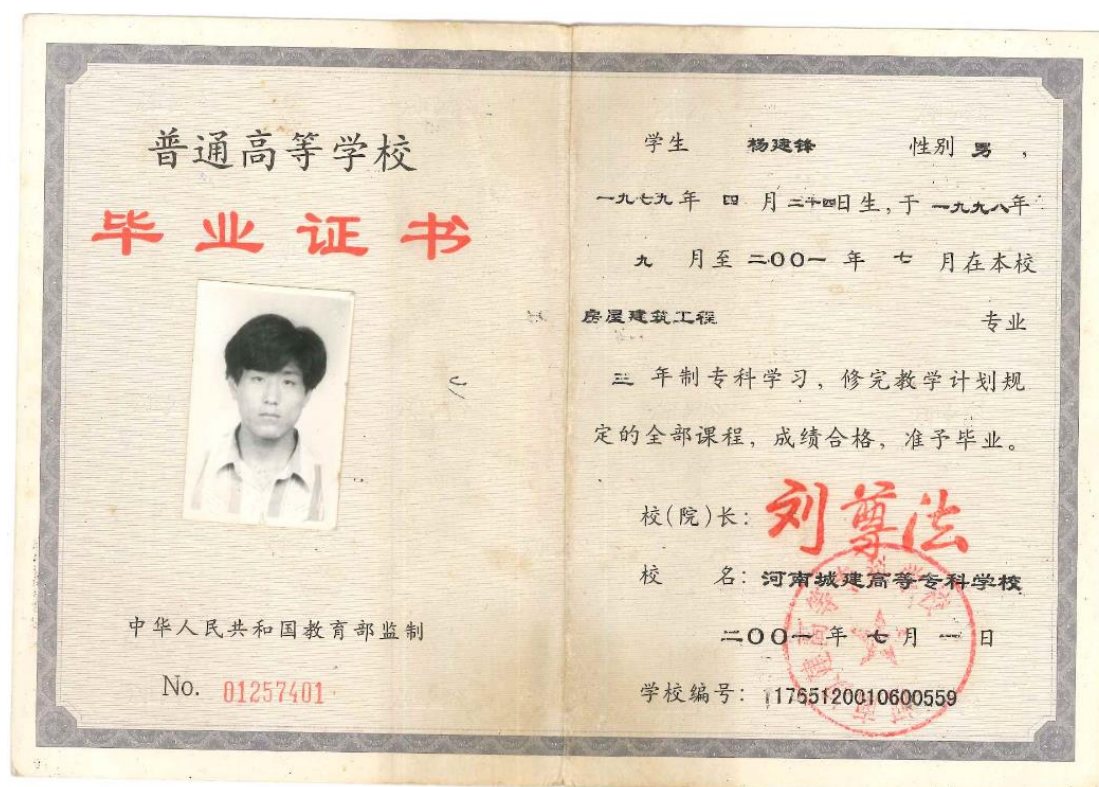 普通高等学校
毕业证书
中华人民共和国教育部监制
No. 01257401
学生 杨建锋 性别 男,
一九七九年 四 月二十四日生,于 一九九八年
九 月至 二00一 年 七 月在本校
房屋建筑工程 专业
三 年制专科学习,修完教学计划规
定的全部课程,成绩合格,准予毕业。
校(院)长: 刘尊法
校 名: 河南城建高等专科学校
二00一年 七月 一 日
学校编号: 11765120010600559